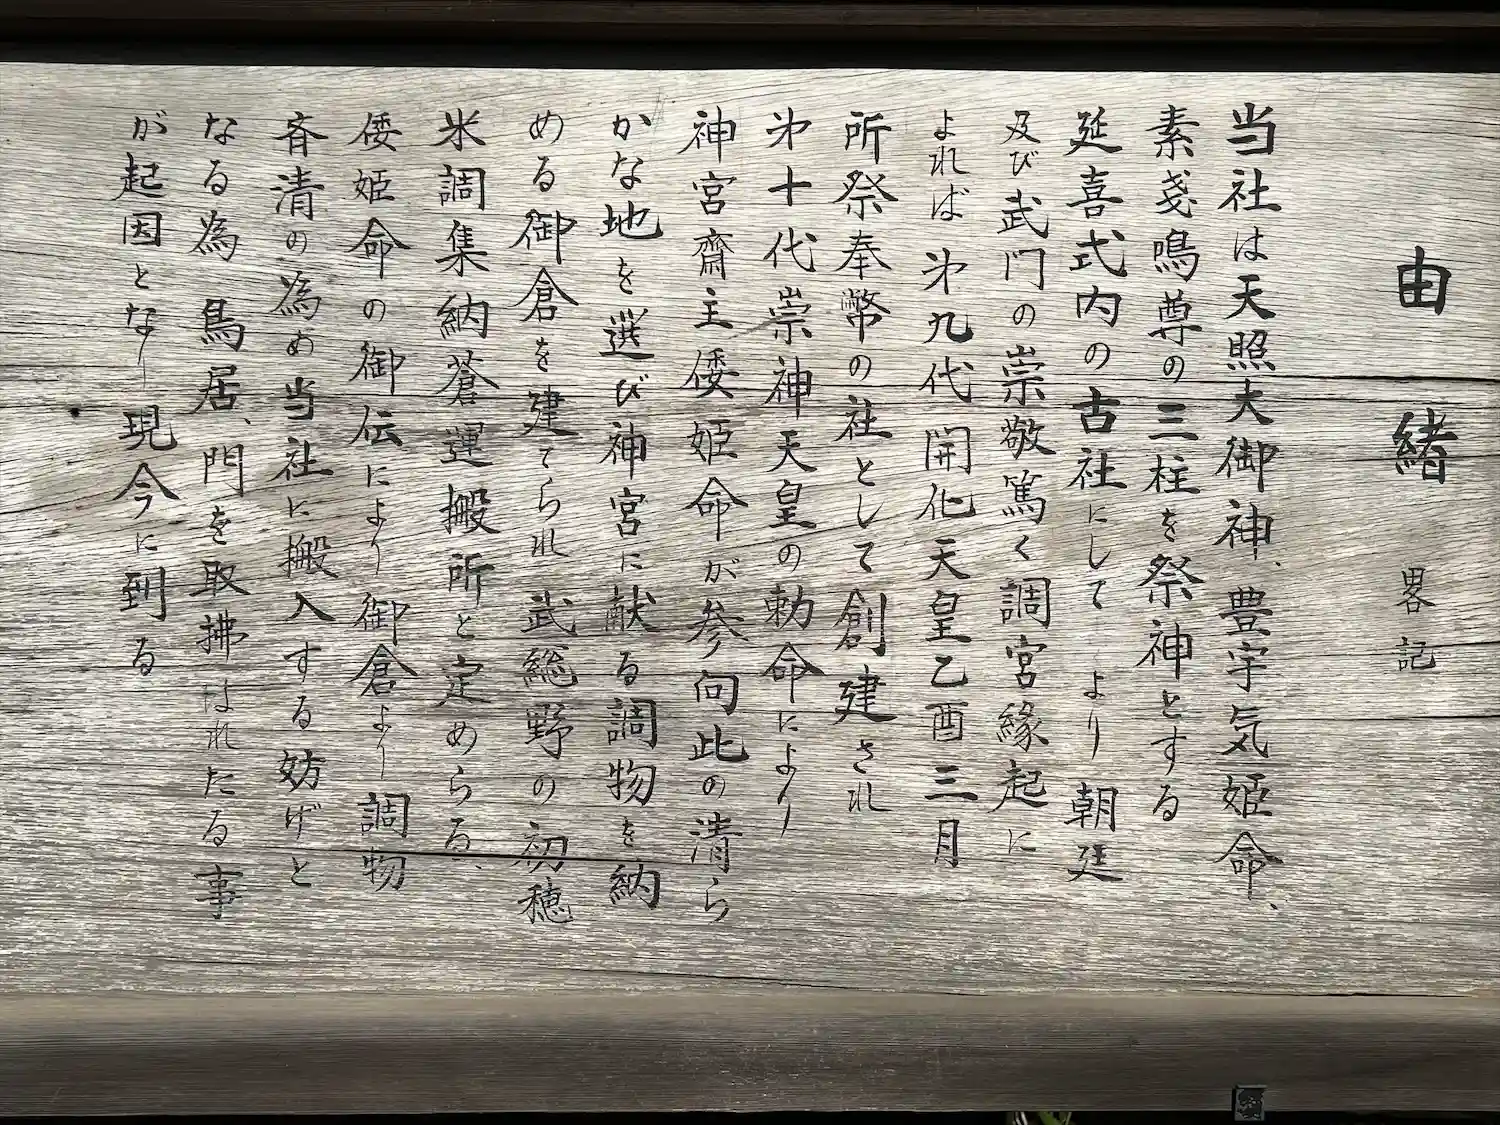 由緒 畧記
当社は天照大御神、豊宇気姫命、
素戔鳴尊の三柱を祭神とする
延喜式内の古社にしてより朝廷
及び武門の崇敬篤く調宮縁起に
よれば 㐧九代開化天皇乙酉三月
所祭奉幣の社として創建され
㐧十代崇神天皇の勅命により
神宮齋主倭姫命が参向此の清ら
かな地を選び神宮に献る調物を納
める御倉を建てられ 武総野の初穂
米調集納蒼運搬所と定めらる、
倭姫命の御伝により御倉より調物
斉清の為め当社に搬入する妨げと
なる為 鳥居、門を取拂はれたる事
が起因となり現今に到る